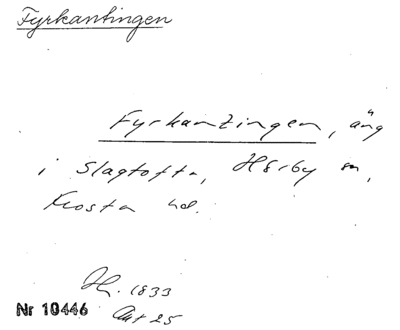 Fyrkantingen
Fyrkantingen, äng
i Slagtofta, Hörby sn,
Frosta hd.
H. 1833
Akt 25
Nr 10446